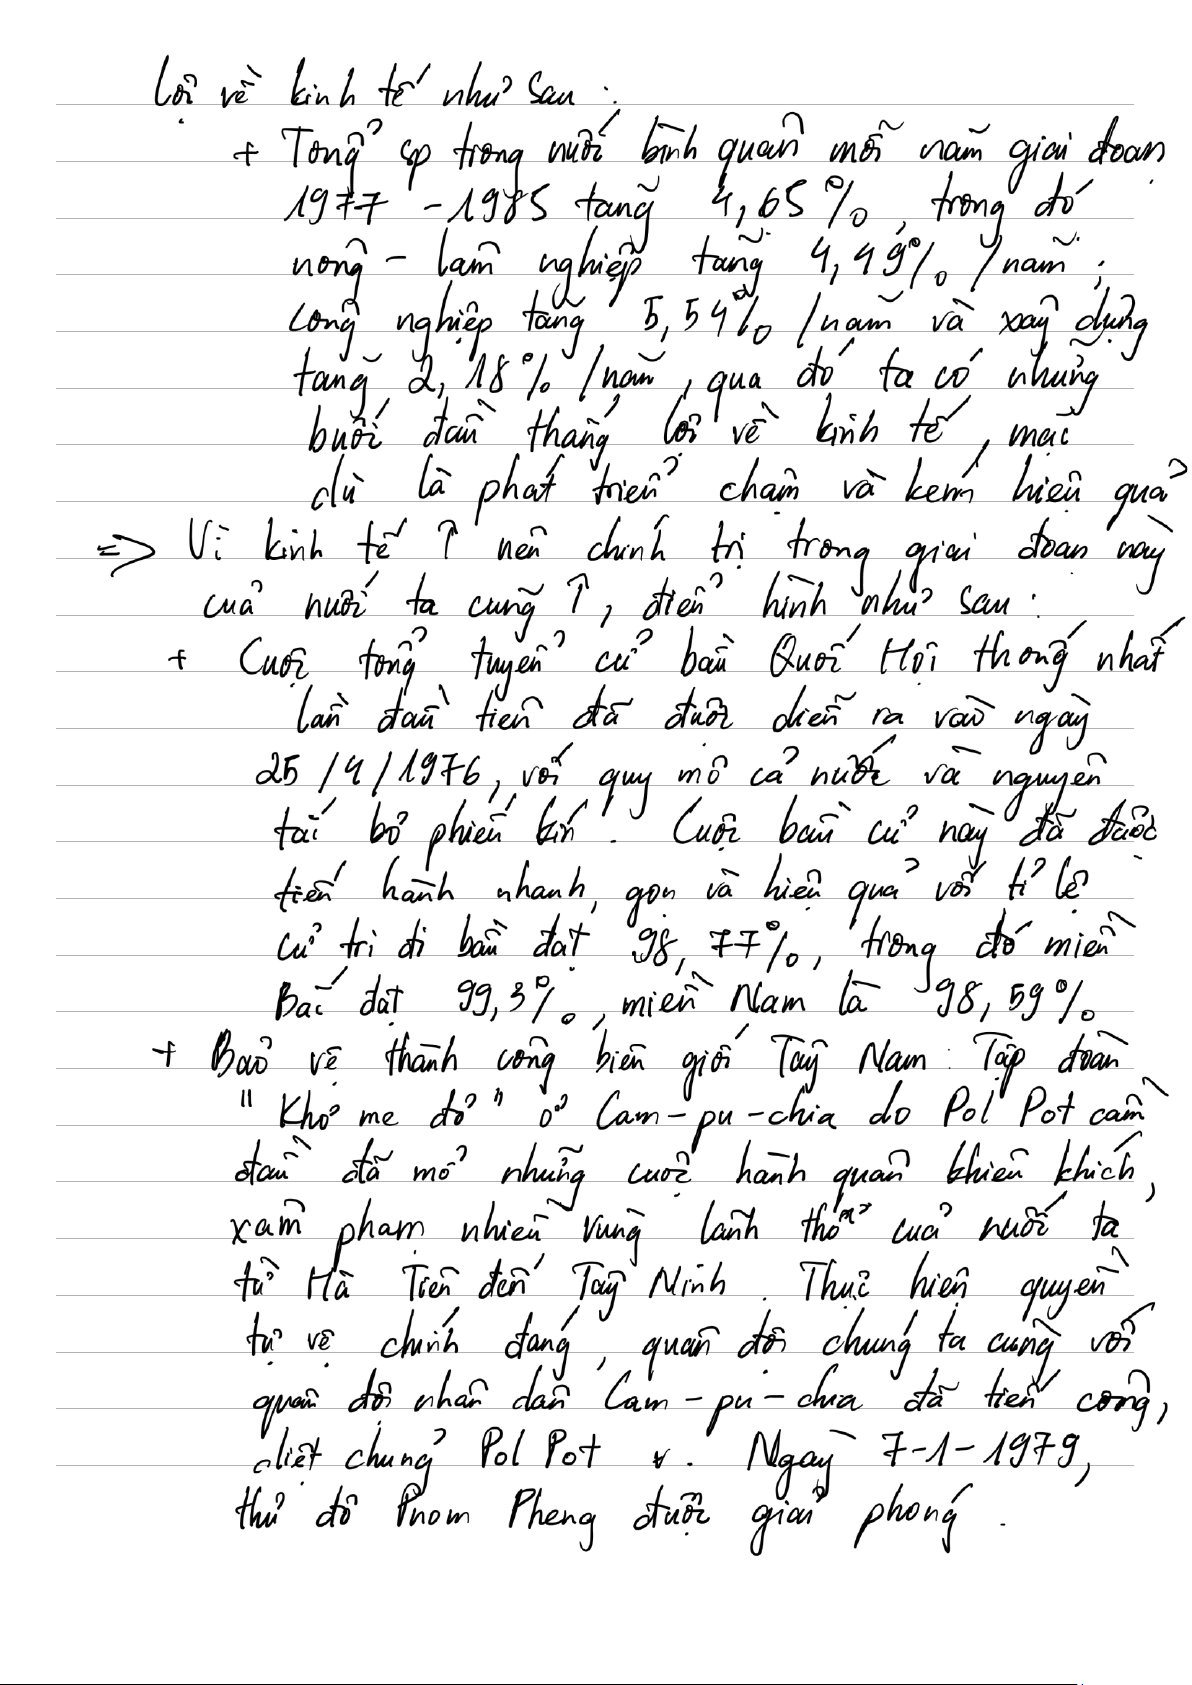 lợi về kinh tế như sau :
+ Tổng sp trong nước bình quân mỗi năm giai đoạn
1977 - 1985 tăng 4,65%, trong đó
nông - lâm nghiệp tăng 4,49% /năm ;
công nghiệp tăng 5,54% /năm và xây dựng
tăng 2,18% /năm, qua đó ta có những
buối đầu thắng lợi về kinh tế, mặc
dù là phát triển chậm và kém hiệu quả
=> Vì kinh tế ↑ nên chính trị trong giai đoạn này
của nước ta cũng ↑, điển hình như sau :
+ Cuộc tổng tuyển cử bầu Quốc Hội thống nhất
lần đầu tiên đã được diễn ra vào ngày
25/4/1976, với quy mô cả nước và nguyên
tắc bỏ phiếu kín. Cuộc bầu cử này đã được
tiến hành nhanh, gọn và hiệu quả với tỉ lệ
cử tri đi bầu đạt 98,77%, trong đó miền
Bắc đạt 99,3%, miền Nam là 98,59%
+ Bảo vệ thành công biên giới Tây Nam : Tập đoàn
"Khơ me đỏ" ở Cam-pu-chia do Pol Pot cầm
đầu đã mở những cuộc hành quân khiêu khích,
xâm phạm nhiều vùng lãnh thổ của nước ta
từ Hà Tiên đến Tây Ninh. Thực hiện quyền
tự vệ chính đáng, quân đội chúng ta cùng với
quân đội nhân dân Cam-pu-chia đã tiến công,
diệt chủng Pol Pot. Ngày 7-1-1979,
thủ đô Pnom Pheng được giải phóng.